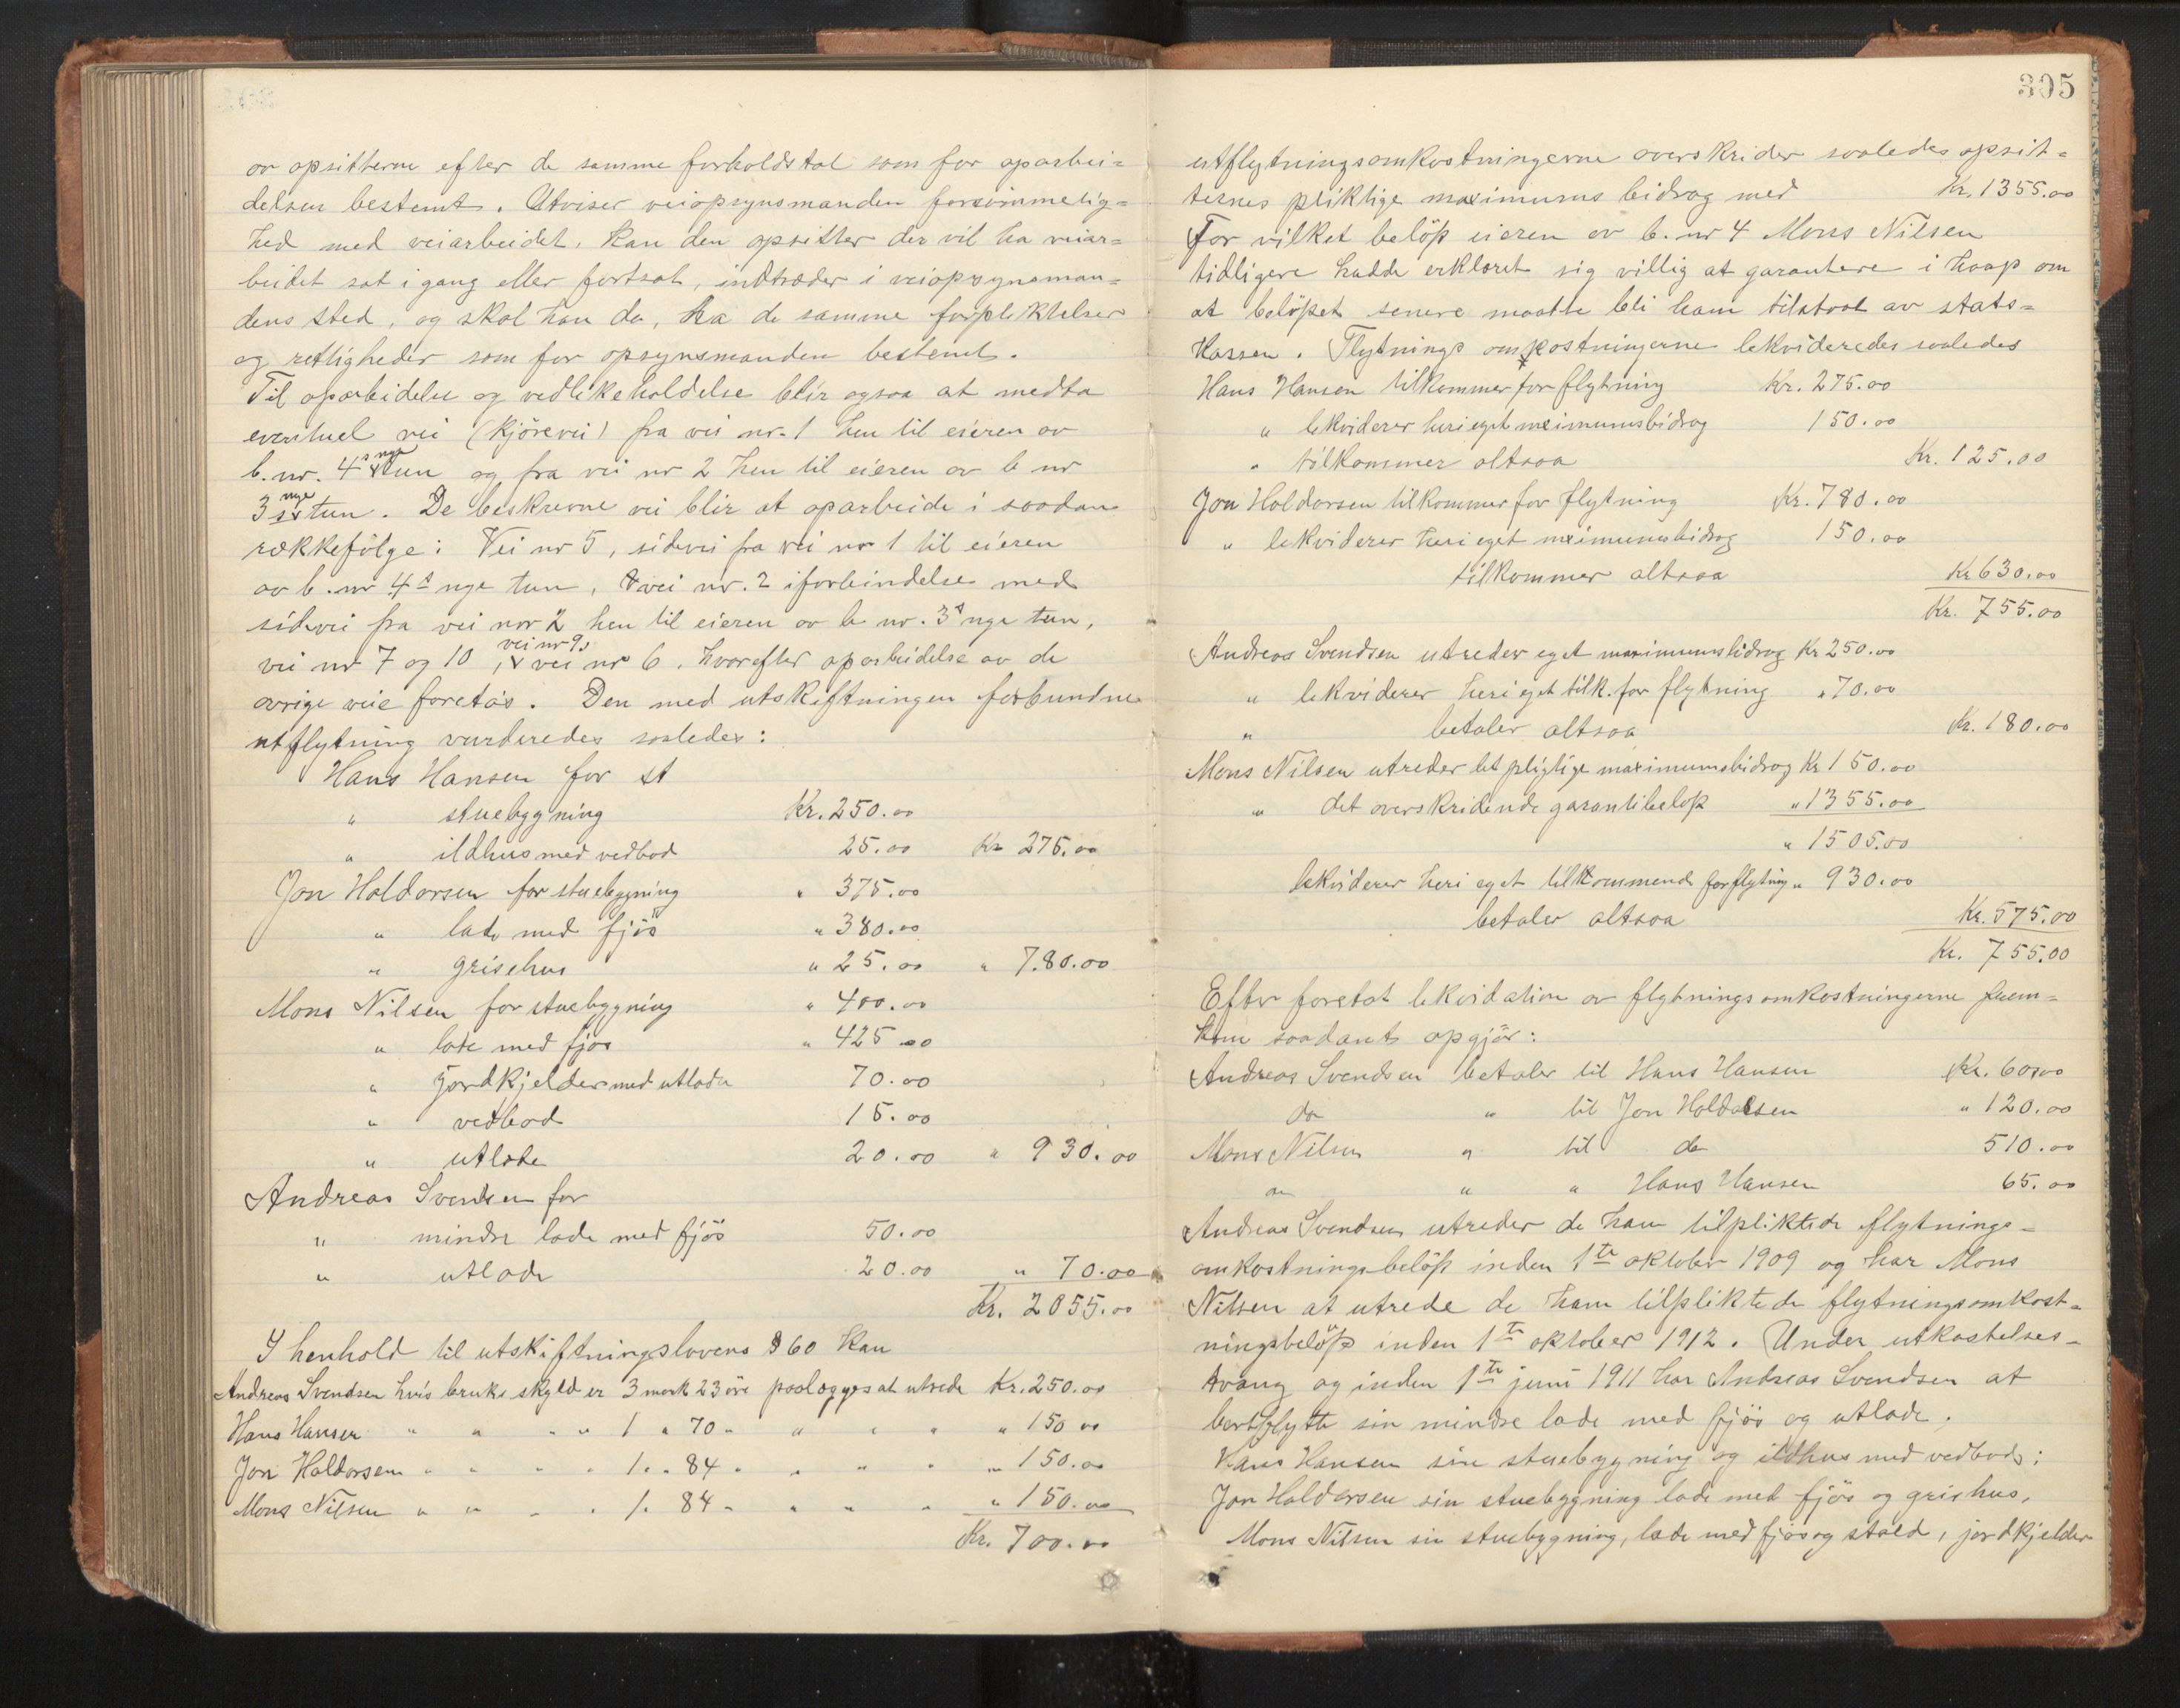 av opsitterne efter de samme forholdstal som for oparbei=
delsen bestemt. Utviser veiopsynsmanden forsömmelig=
hed med veiarbeidet, kan den opsitter der vil ha veiar=
beidet sat i gang eller fortsat, indtræder i veiopsynsman=
dens sted, og skal han da, ha de samme forpliktelser
og rettigheder som for opsynsmanden bestemt.
Til oparbeidelse og vedlikeholdelse blir ogsaa at medta
eventuel vei (kjörevei) fra vei nr. 1 hen til eieren av
b. nr. 4s nye tun og fra vei nr 2 hen til eieren av b nr
3s nye tun. De beskrevne vei blir at oparbeide i saadan
rækkefölge: Vei nr 5, sidevei fra vei nr 1 til eieren
av b. nr 4s nye tun, vei nr. 2 iforbindelse med
sidevei fra vei nr 2 hen til eieren av b nr. 3s nye tun,
vei nr 7 og 10, vei nr 9, vei nr 6, hvorefter oparbeidelse av de
övrige veie foretas. Den med utskiftningen forbundne
utflytning vurderedes saaledes:
Hans Hansen for st
" stuebygning Kr. 250.00
" ildhus med vedbod 25.00 Kr 275.00
Jon Haldorsen for stuebygning " 375.00
" lade med fjös " 380.00
" grisehus " 25.00 " 7.80.00
Mons Nilsen for stuebygning " 400.00
" lade med fjös " 425 00
" jordkjelder med utlade 70.00
" vedbod 15.00
" utlade 20.00 " 930.00
Andreas Svendsen for
" mindre lade med fjös 50.00
" utlade 20.00 " 70.00
Kr. 2055.00
I henhold til utskiftningslovens § 60 kan
Andreas Svendsen hvis bruks skyld er 3 mark 23 öre paalægges at utrede Kr. 250.00
Hans Hansen " " " " 1 " 70 " " " " " 150 00
Jon Haldorsen " " " " 1 " 84 " " " " " 150.00
Mons Nilsen " " " " 1 " 84 " " " " " 150.00
Kr. 700.00
305
utflytningsomkostningerne overskrider saaledes opsit=
ternes pliktige maximums bidrag med Kr. 1355.00
For vilket belöp eieren av b. nr 4 Mons Nilsen
tidligere hadde erklæret sig villig at garantere i haap om
at belöpet senere maatte bli ham tilstaat av stats=
kassen. Flytnings omkostningerne lekvideredes saaledes
Hans Hansen tilkommer for flytning Kr. 275.00
" lekviderer heri eget meimumsbidrag 150.00
" tilkommer altsaa Kr. 125.00
Jon Haldorsen tilkommer for flytning Kr. 780.00
" lekviderer heri eget meimumsbidrag 150.00
tilkommer altsaa Kr 630.00
Kr. 755.00
Andreas Svendsen utreder eget maximumsbidrag Kr 250.00
" lekviderer heri eget tilk. for flytning " 70.00
" betaler altsaa Kr. 180.00
Mons Nilsen utreder det pligtige maximumsbidrag Kr 150.00
" det overskridende garantibelöp " 1355.00
" 1505.00
lekviderer heri eget tilkommende for flytnig " 930.00
betaler altsaa Kr. 575.00
Kr. 755.00
Efter foretat lekvidation av flytningsomkostningerne frem=
kom saadant opgjör:
Andreas Svendsen betaler til Hans Hansen Kr. 60.00
do " til Jon Haldorsen " 120.00
Mons Nilsen " til do 510.00
do " " Hans Hansen 65.00
Andreas Svendsen utreder de ham tilpliktede flytnings=
omkostningsbelöp inden 1te oktober 1909 og har Mons
Nilsen at utrede de ham tilpliktede flytningsomkost=
ningsbelöp inden 1te oktober 1912. Under utkastelses=
tvang og inden 1te juni 1911 har Andreas Svendsen at
bortflytte sin mindre lade med fjös og utlade.
Hans Hansen sin stuebygning og ildhus med vedbod;
Jon Haldorsen sin stuebygning lade med fjös og grishus,
Mons Nilsen sin stuebygning, lade med fjös og stald, jordkjelder